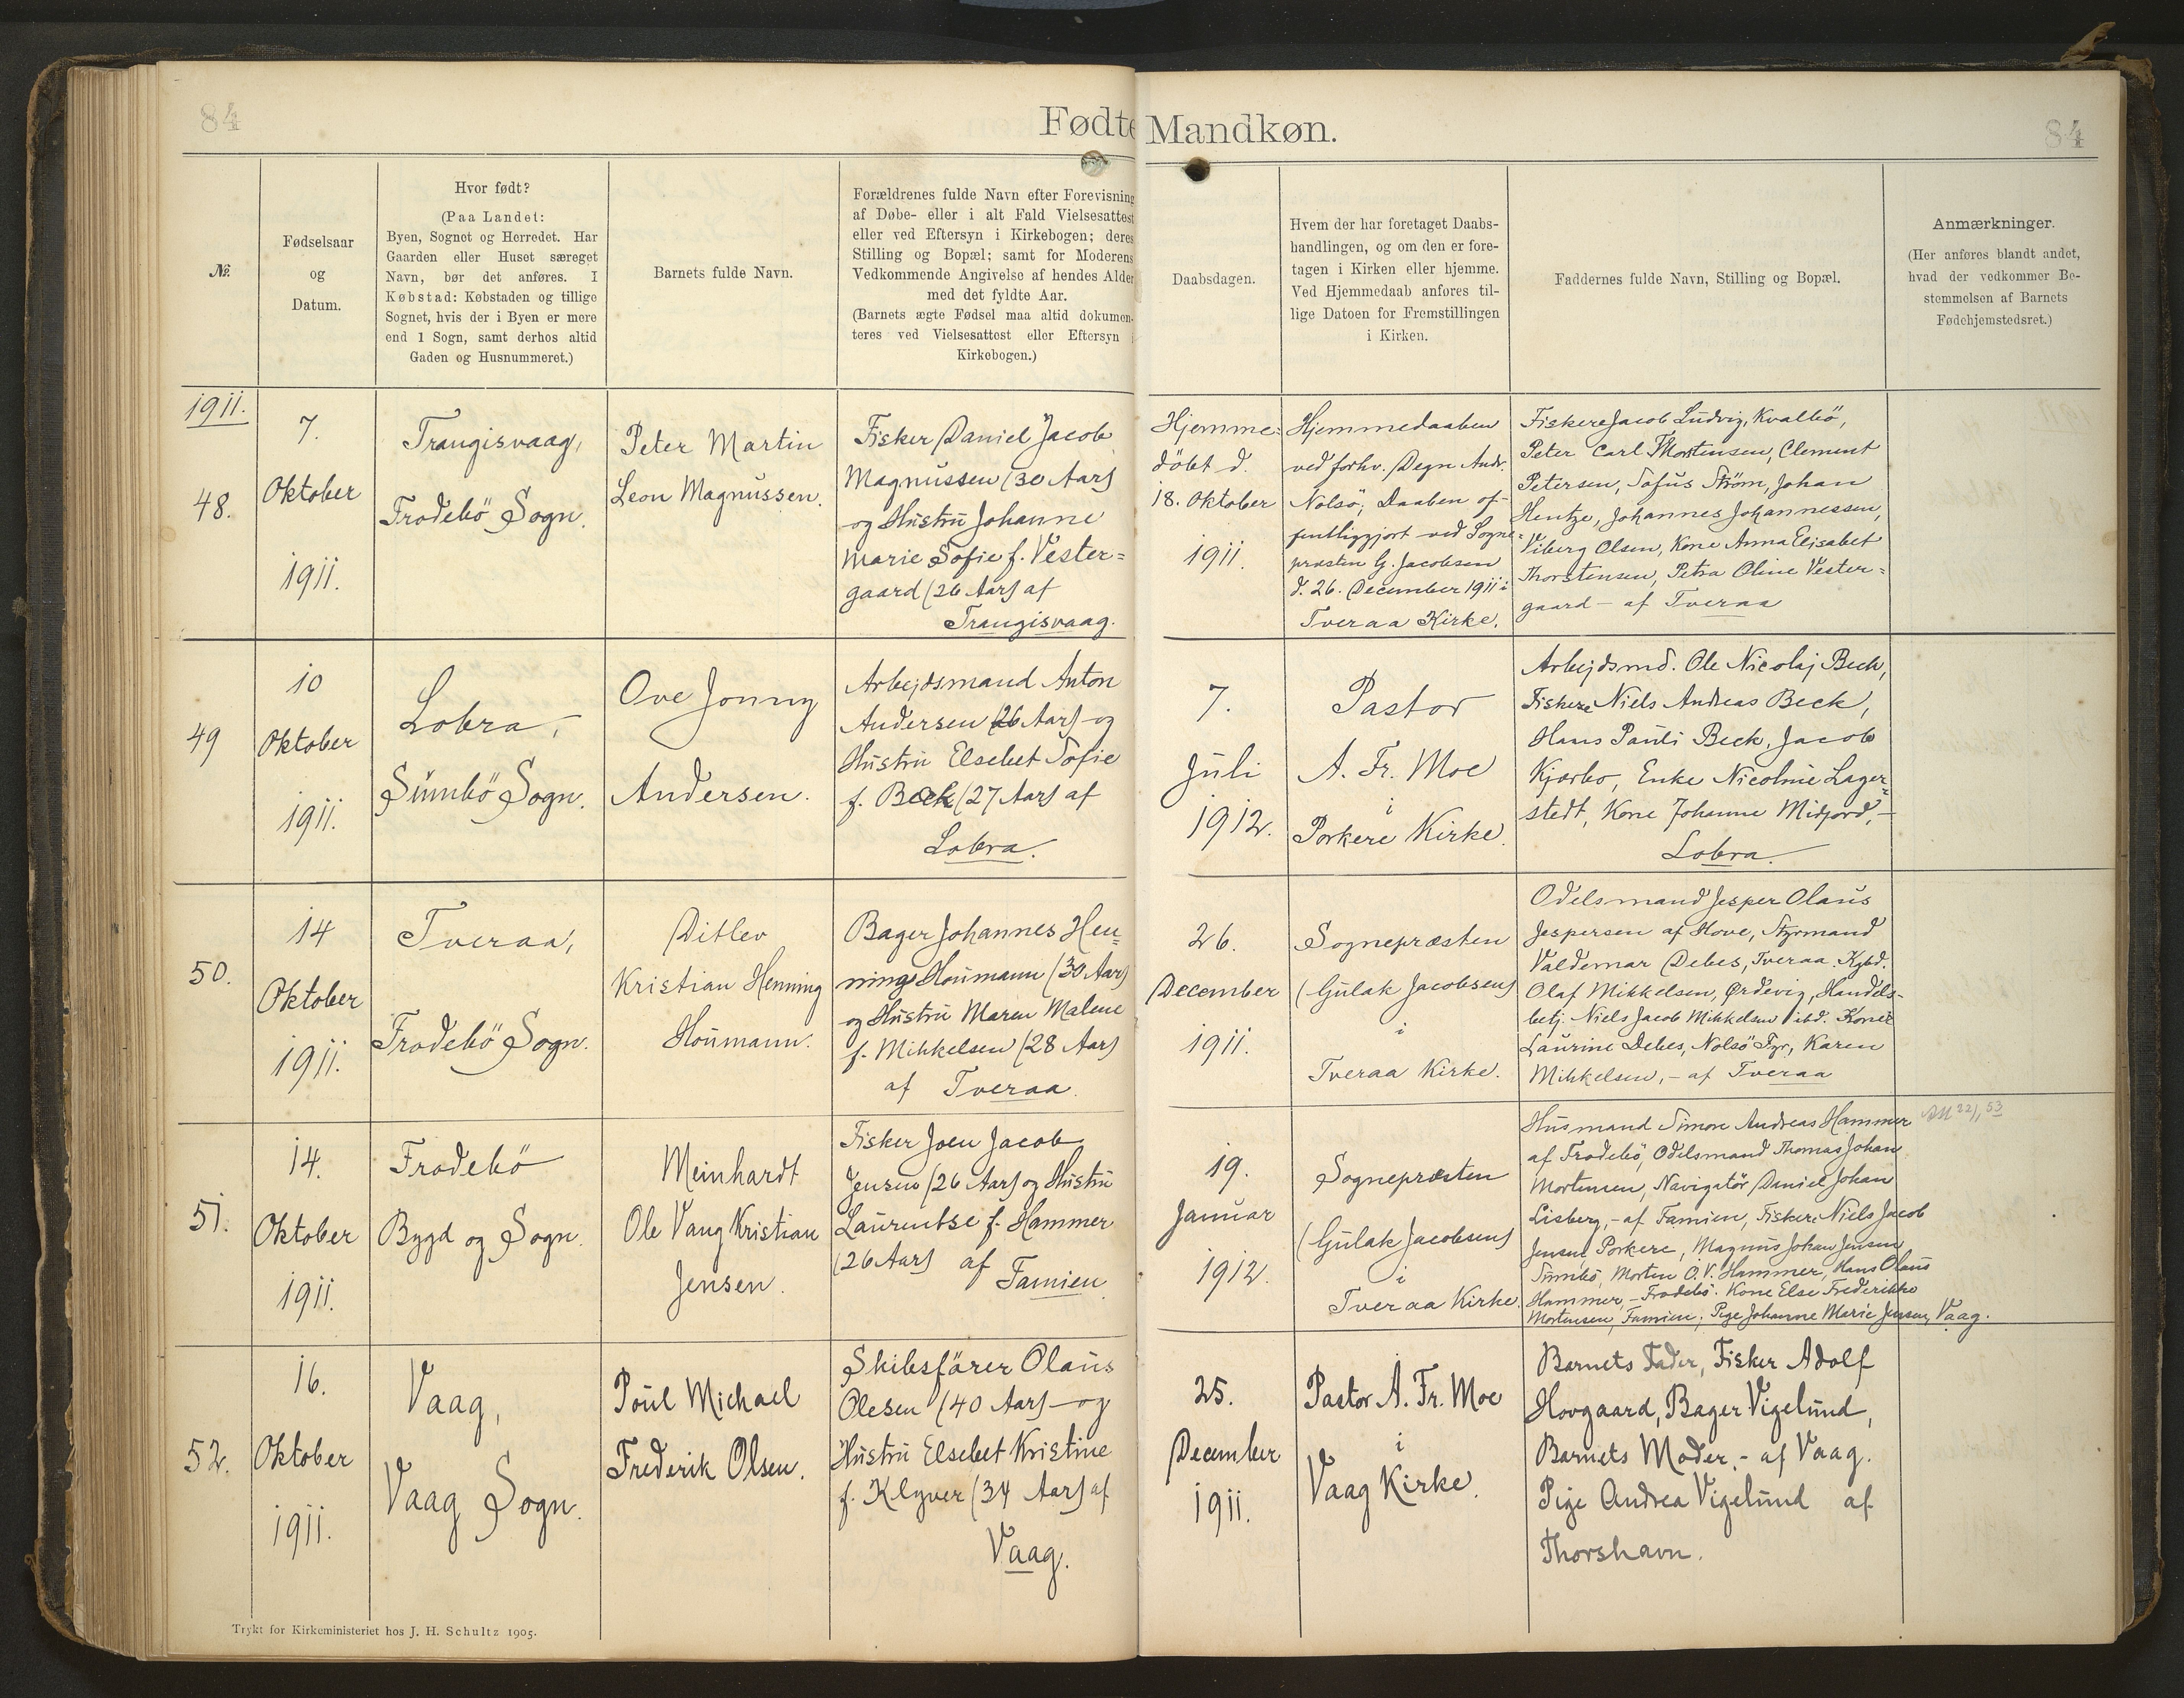 84
Fødte
Mandkøn.
84
№.
Fødselsaar
og
Datum.
Hvor født?
(Paa Landet:
Byen, Sognet og Herredet. Har
Gaarden eller Huset særeget
Navn, bør det anføres. I
Købstad: Købstaden og tillige
Sognet, hvis der i Byen er mere
end 1 Sogn, samt derhos altid
Gaden og Husnummeret.)
Barnets fulde Navn.
Forældrenes fulde Navn efter Forevisning
af Døbe- eller i alt Fald Vielsesattest
eller ved Eftersyn i Kirkebogen; deres
Stilling og Bopæl; samt for Moderens
Vedkommende Angivelse af hendes Alder
med det fyldte Aar.
(Barnets ægte Fødsel maa altid dokumen-
teres ved Vielsesattest eller Eftersyn i
Kirkebogen.)
Daabsdagen.
Hvem der har foretaget Daabs-
handlingen, og om den er fore-
tagen i Kirken eller hjemme.
Ved Hjemmedaab anføres til-
lige Datoen for Fremstillingen
i Kirken.
Faddernes fulde Navn, Stilling og Bopæl.
Anmærkninger.
(Her anføres blandt andet,
hvad der vedkommer Be-
stemmelsen af Barnets
Fødehjemstedsret.)
1911.
48.
7.
Oktober
1911.
Trangisvaag,
Frodebö Sogn.
Peter Martin
Leon Magnussen.
Fisker Daniel Jacob
Magnussen (30 Aar)
og Hustru Johanne
Marie Sofie f. Vester=
gaard (26 Aar) af
Trangisvaag.
Hjemme=
döbt d.
18. Oktober
1911.
Hjemmedaaben
ved forhv. Degn Andr.
Nolsö; Daaben of-
fentliggjort ved Sogne=
præsten G. Jacobsen
d. 26. December 1911 i
Tveraa Kirke.
Fiskere Jacob Ludvig, Kvalbö,
Peter Carl Thorstensen, Clement
Petersen, Sofus Ström, Johan
Hentze, Johannes Johannessen,
Viberg Olsen, Kone Anna Elisabet
Thorstensen, Petra Oline Vester=
gaard - af Tveraa
49
10
Oktober
1911.
Lobra,
Sumbö Sogn.
Ove Jonny
Andersen.
Arbejdsmand Anton
Andersen (26 Aar) og
Hustru Elsebet Sofie
f. Beck (27 Aar) af
Lobra.
7.
Juli
1912.
Pastor
A. Fr. Moe
i
Porkere Kirke.
Arbejdsmd. Ole Nicolaj Beck,
Fiskere Niels Andreas Beck,
Hans Pauli Beck, Jacob
Kjærbo, Enke Nicoline Lager=
stedt, Kone Johanne Midjord, -
Lobra.
50.
14
Oktober
1911.
Tveraa,
Frodebö Sogn.
Ditlev
Kristian Henning
Houmann.
Bager Johannes Hen=
ning Houmann (30 Aar)
og Hustru Maren Malene
f. Mikkelsen (28 Aar)
af Tveraa.
26.
December
1911.
Sognepræsten
(Gulak Jacobsen)
i
Tveraa Kirke.
Odelsmand Jesper Olaus
Jespersen af Hove, Styrmand
Valdemar Debes, Tveraa. Kjbd.
Olaf Mikkelsen, Ørdevig, Handels-
betj. Niels Jacob Mikkelsen ibd. Kone
Laurine Debes, Nolsö Fyr, Karen
Mikkelsen, - af Tveraa
51.
14.
Oktober
1911.
Frodebö
Bygd og Sogn.
Meinhardt
Ole Vang Kristian
Jensen.
Fisker Joen Jacob
Jensen (26 Aar) og Hustru
Laurentse f. Hammer
(26 Aar) af
Famien.
19.
Januar
1912.
Sognepræsten
(Gulak Jacobsen)
i
Tveraa Kirke.
Husmand Simon Andreas Hammer
af Frodebö, Odelsmand Thomas Johan
Mortensen, Navigatör Daniel Johan
Lisberg, - af Famien, Fiskere Niels Jacob
Jensen, Porkere, Magnus Johan Jensen
Sumbö, Morten O. V. Hammer, Hans Olaus
Hammer, - Frodebö. Kone Else Frederikke
Mortensen, Famien; Pige Johanne Marie Jensen, Vaag.
22/1 53
52.
16.
Oktober
1911.
Vaag,
Vaag Sogn.
Poul Michael
Frederik Olsen.
Skibsförer Olaus
Olesen (40 Aar) og
Hustru Elsebet Kristine
f. Klyver (34 Aar) af
Vaag.
25.
December
1911.
Pastor A. Fr. Moe
i
Vaag Kirke.
Barnets Fader, Fisker Adolf
Hovgaard, Bager Vigelund,
Barnets Moder, - af Vaag.
Pige Andrea Vigelund af
Thorshavn.
Trykt for Kirkeministeriet hos J. H. Schultz 1905.